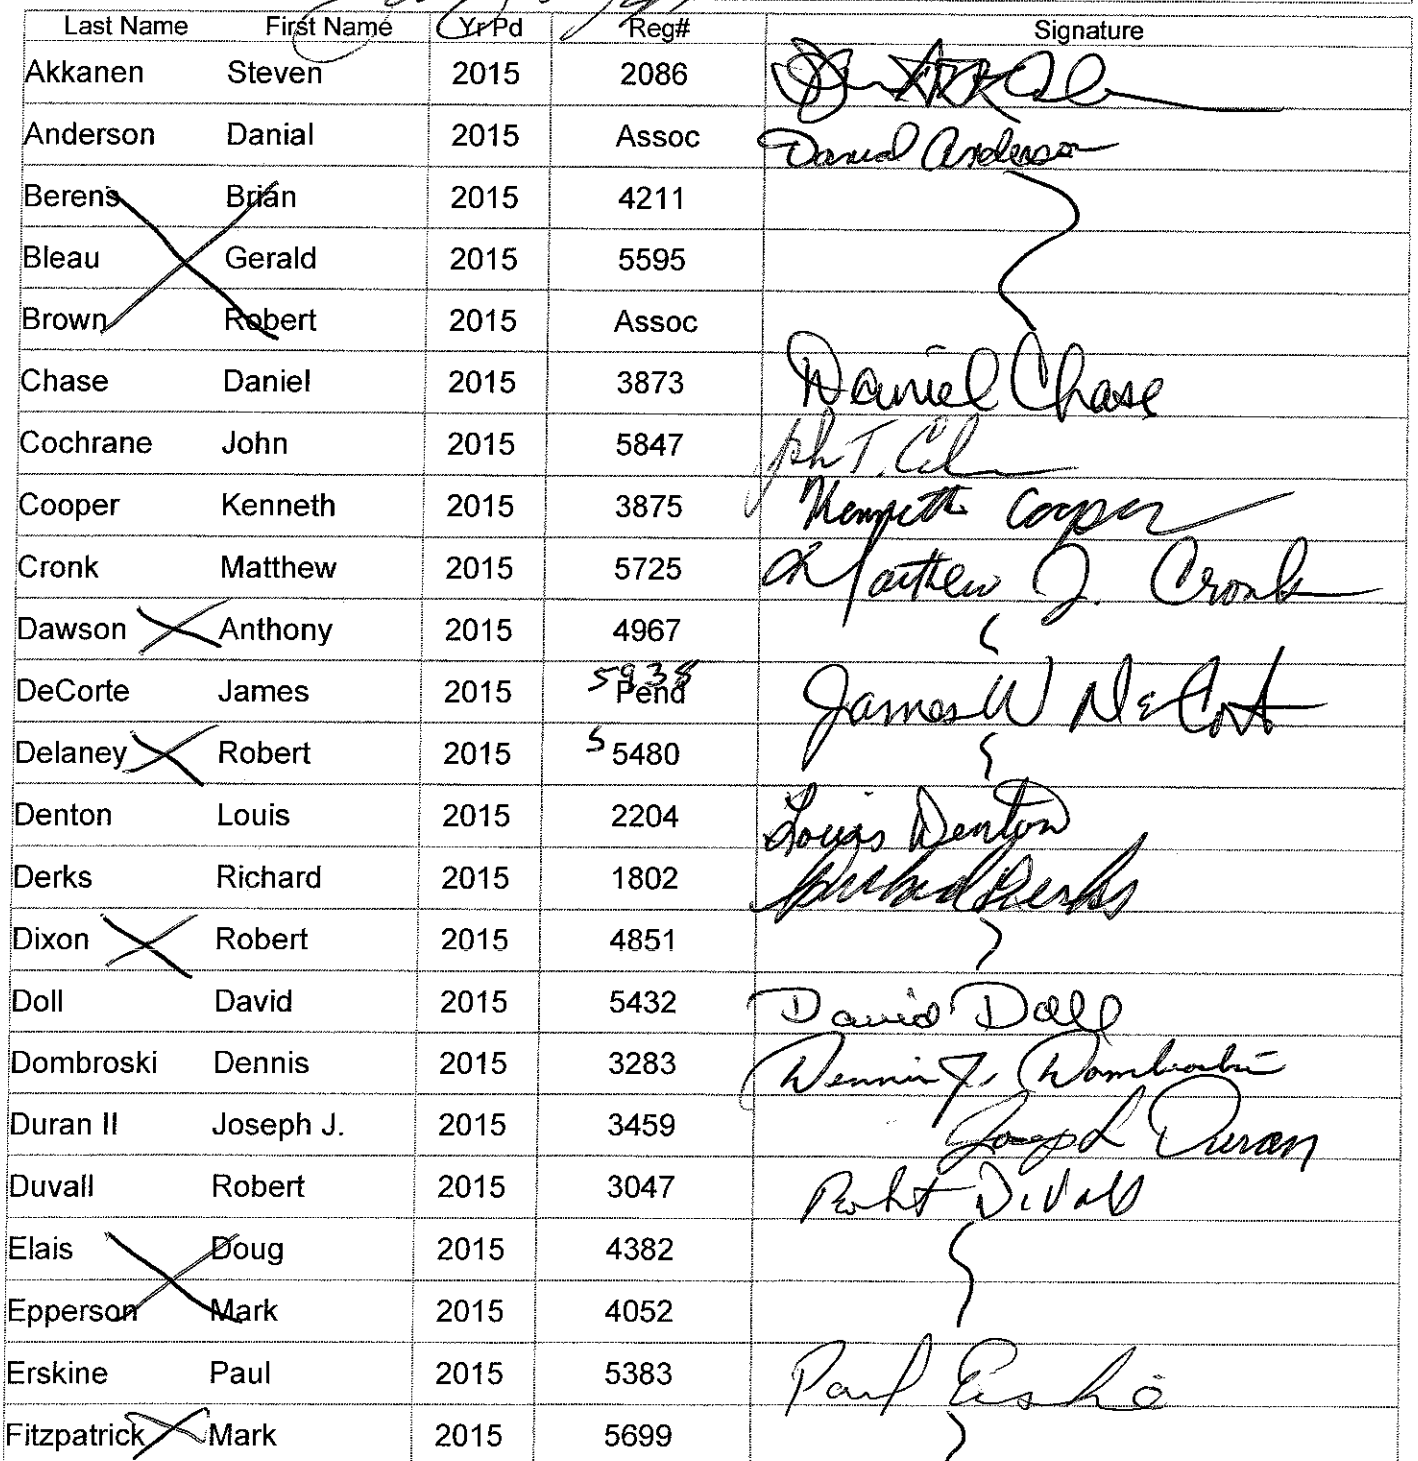 Last Name First Name Yr Pd Reg# Signature
Akkanen Steven 2015 2086
Anderson Danial 2015 Assoc Danial Anderson
Berens Brian 2015 4211
Bleau Gerald 2015 5595
Brown Robert 2015 Assoc
Chase Daniel 2015 3873 Daniel Chase
Cochrane John 2015 5847
Cooper Kenneth 2015 3875 Kenneth Cooper
Cronk Matthew 2015 5725 Matthew J. Cronk
Dawson Anthony 2015 4967
5938
DeCorte James 2015 Pend James W DeCort
Delaney Robert 2015 5 5480
Denton Louis 2015 2204 Louis Denton
Derks Richard 2015 1802 Richard Derks
Dixon Robert 2015 4851
Doll David 2015 5432 David Doll
Dombroski Dennis 2015 3283 Dennis J. Dombroski
Duran II Joseph J. 2015 3459 Joseph Duran
Duvall Robert 2015 3047 Robt DuVall
Elais Doug 2015 4382
Epperson Mark 2015 4052
Erskine Paul 2015 5383 Paul Erskine
Fitzpatrick Mark 2015 5699